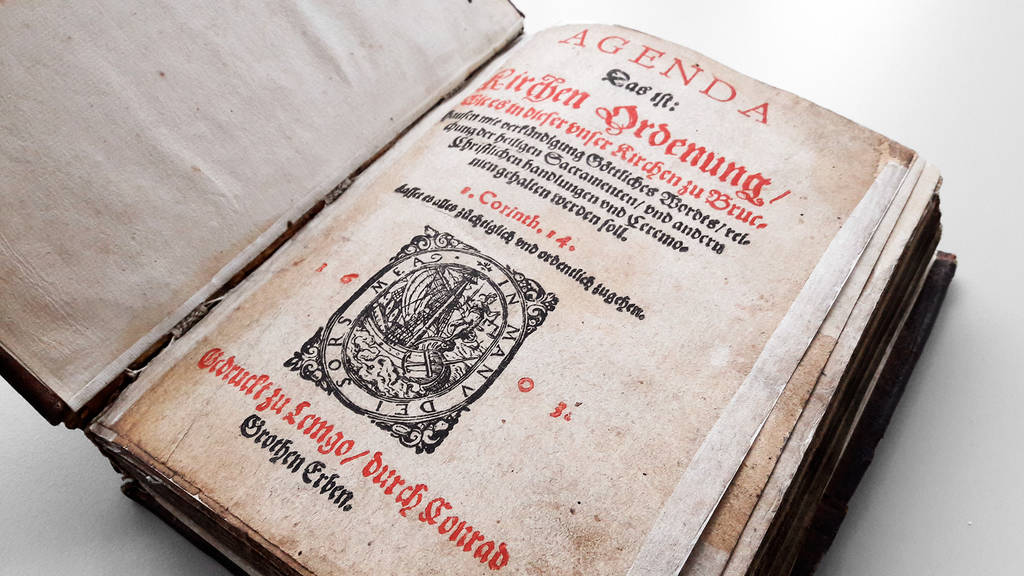 AGENDA
Das ist:
Kirchen Ordenung/
Wie es in dieser vnser Kirchen zu Bruc-
hausen mit verkündigung Göttliches Wordes/ rei-
chung der heiligen Sacramenten/ vnd andern
Christlichen handlungen vnd Ceremo-
nien gehalten werden soll.
1. Corinth. 14.
dasset es alles züchtiglich vnd ordentlich zugehen.
1 6
IN MANU DEI SORS MEA
0 3.
Gedruckt zu Lemgo/ durch Conrad
Grothen Erben.